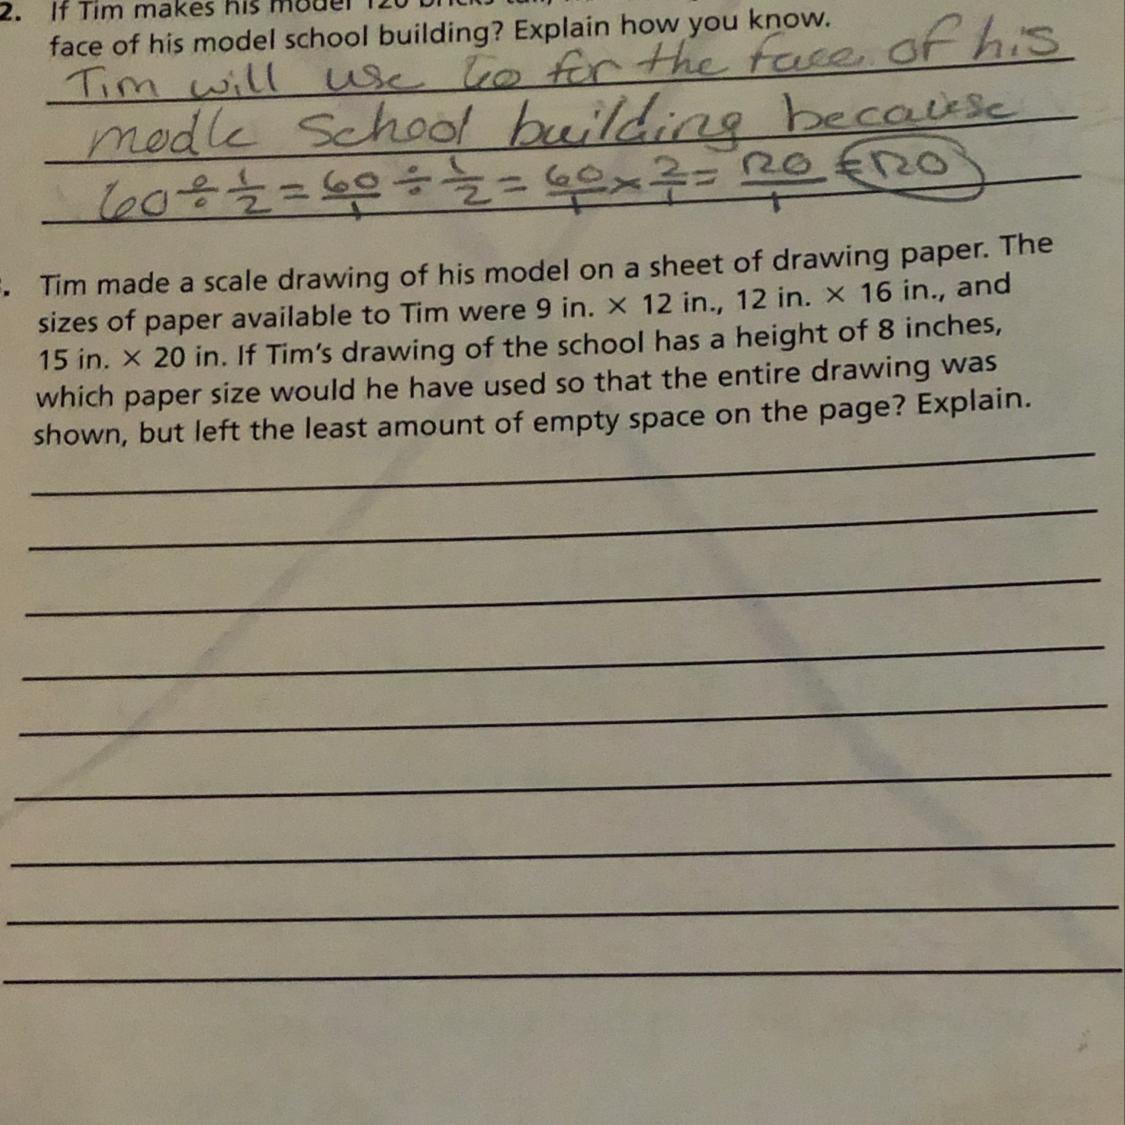 2. If Tim makes his model 120 bricks tall,
face of his model school building? Explain how you know.
Tim will use 60 for the face of his
modle School building because
60 ÷ 1/2 = 60/1 ÷ 1/2 = 60/1 × 2/1 = 120/1 = 120
. Tim made a scale drawing of his model on a sheet of drawing paper. The
sizes of paper available to Tim were 9 in. × 12 in., 12 in. × 16 in., and
15 in. × 20 in. If Tim's drawing of the school has a height of 8 inches,
which paper size would he have used so that the entire drawing was
shown, but left the least amount of empty space on the page? Explain.